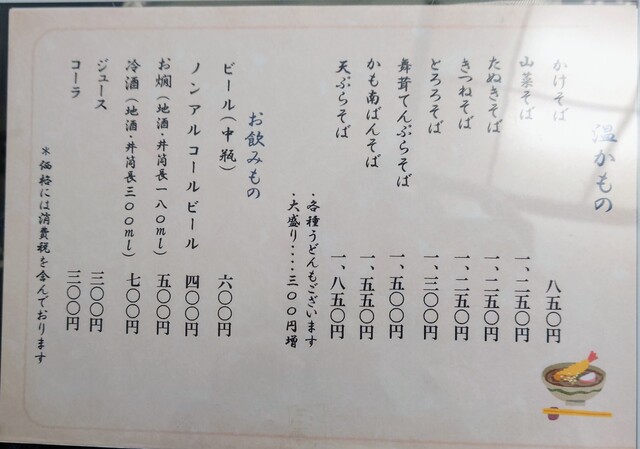 温かもの
かけそば 八五〇円
山菜そば 一、二五〇円
たぬきそば 一、二五〇円
きつねそば 一、二五〇円
とろろそば 一、三〇〇円
舞茸てんぷらそば 一、五〇〇円
かも南ばんそば 一、五五〇円
天ぷらそば 一、八五〇円
・各種うどんもございます
・大盛り・・・・三〇〇円増
お飲みもの
ビール(中瓶) 六〇〇円
ノンアルコールビール 四〇〇円
お燗(地酒・井筒長一八〇ml) 五〇〇円
冷酒(地酒・井筒長三〇〇ml) 七〇〇円
ジュース 三〇〇円
コーラ 三〇〇円
*価格には消費税を含んでおります